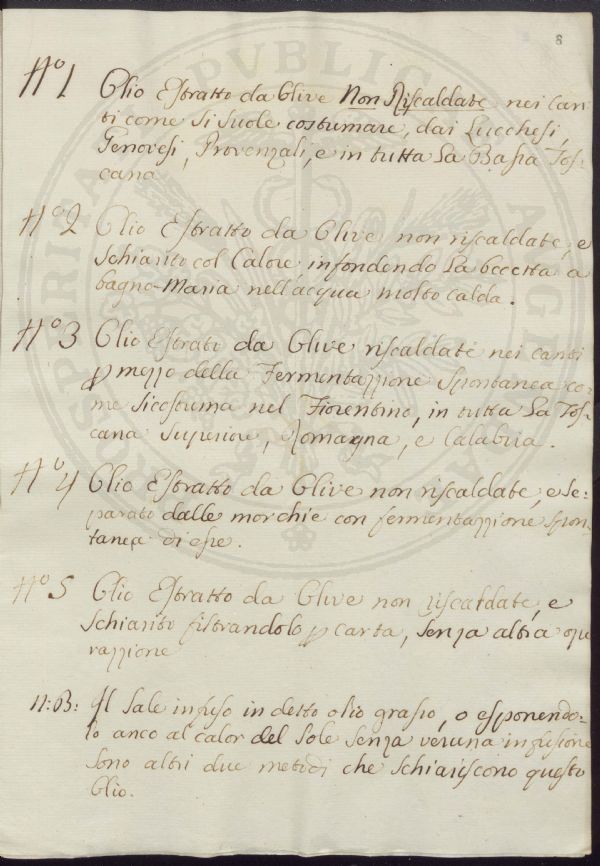 8
N.º 1 Olio Estratto da Olive Non Riscaldate nei can-
ti come si suole costumare, dai Lucchesi,
Genovesi, Provenzali, e in tutta La Bassa Tos-
cana
N.º 2 Olio Estratto da Olive non riscaldate, e
schiarito col Calore infondendo La boccetta a
bagno-Maria nell'acqua molto calda.
N.º 3 Olio Estratto da Olive riscaldate nei canti
p mezzo della Fermentazzione spontanea co-
me si costuma nel Fiorentino, in tutta La Tos-
cana Superiore, Romagna, e Calabria.
N.º 4 Olio Estratto da Olive non riscaldate, e se-
parato dalle morchie con fermentazzione spon-
tanea di esse.
N.º 5 Olio Estratto da Olive non riscaldate, e
schiarito filtrandolo p carta, senza altra ope-
razzione
N:B: Il Sale infuso in detto olio grasso, o esponendo-
lo anco al calor del Sole senza veruna infusione
sono altri due metodi che schiariscono questo
Olio.
PROSPERITATI PUBLICAE AUGENDAE